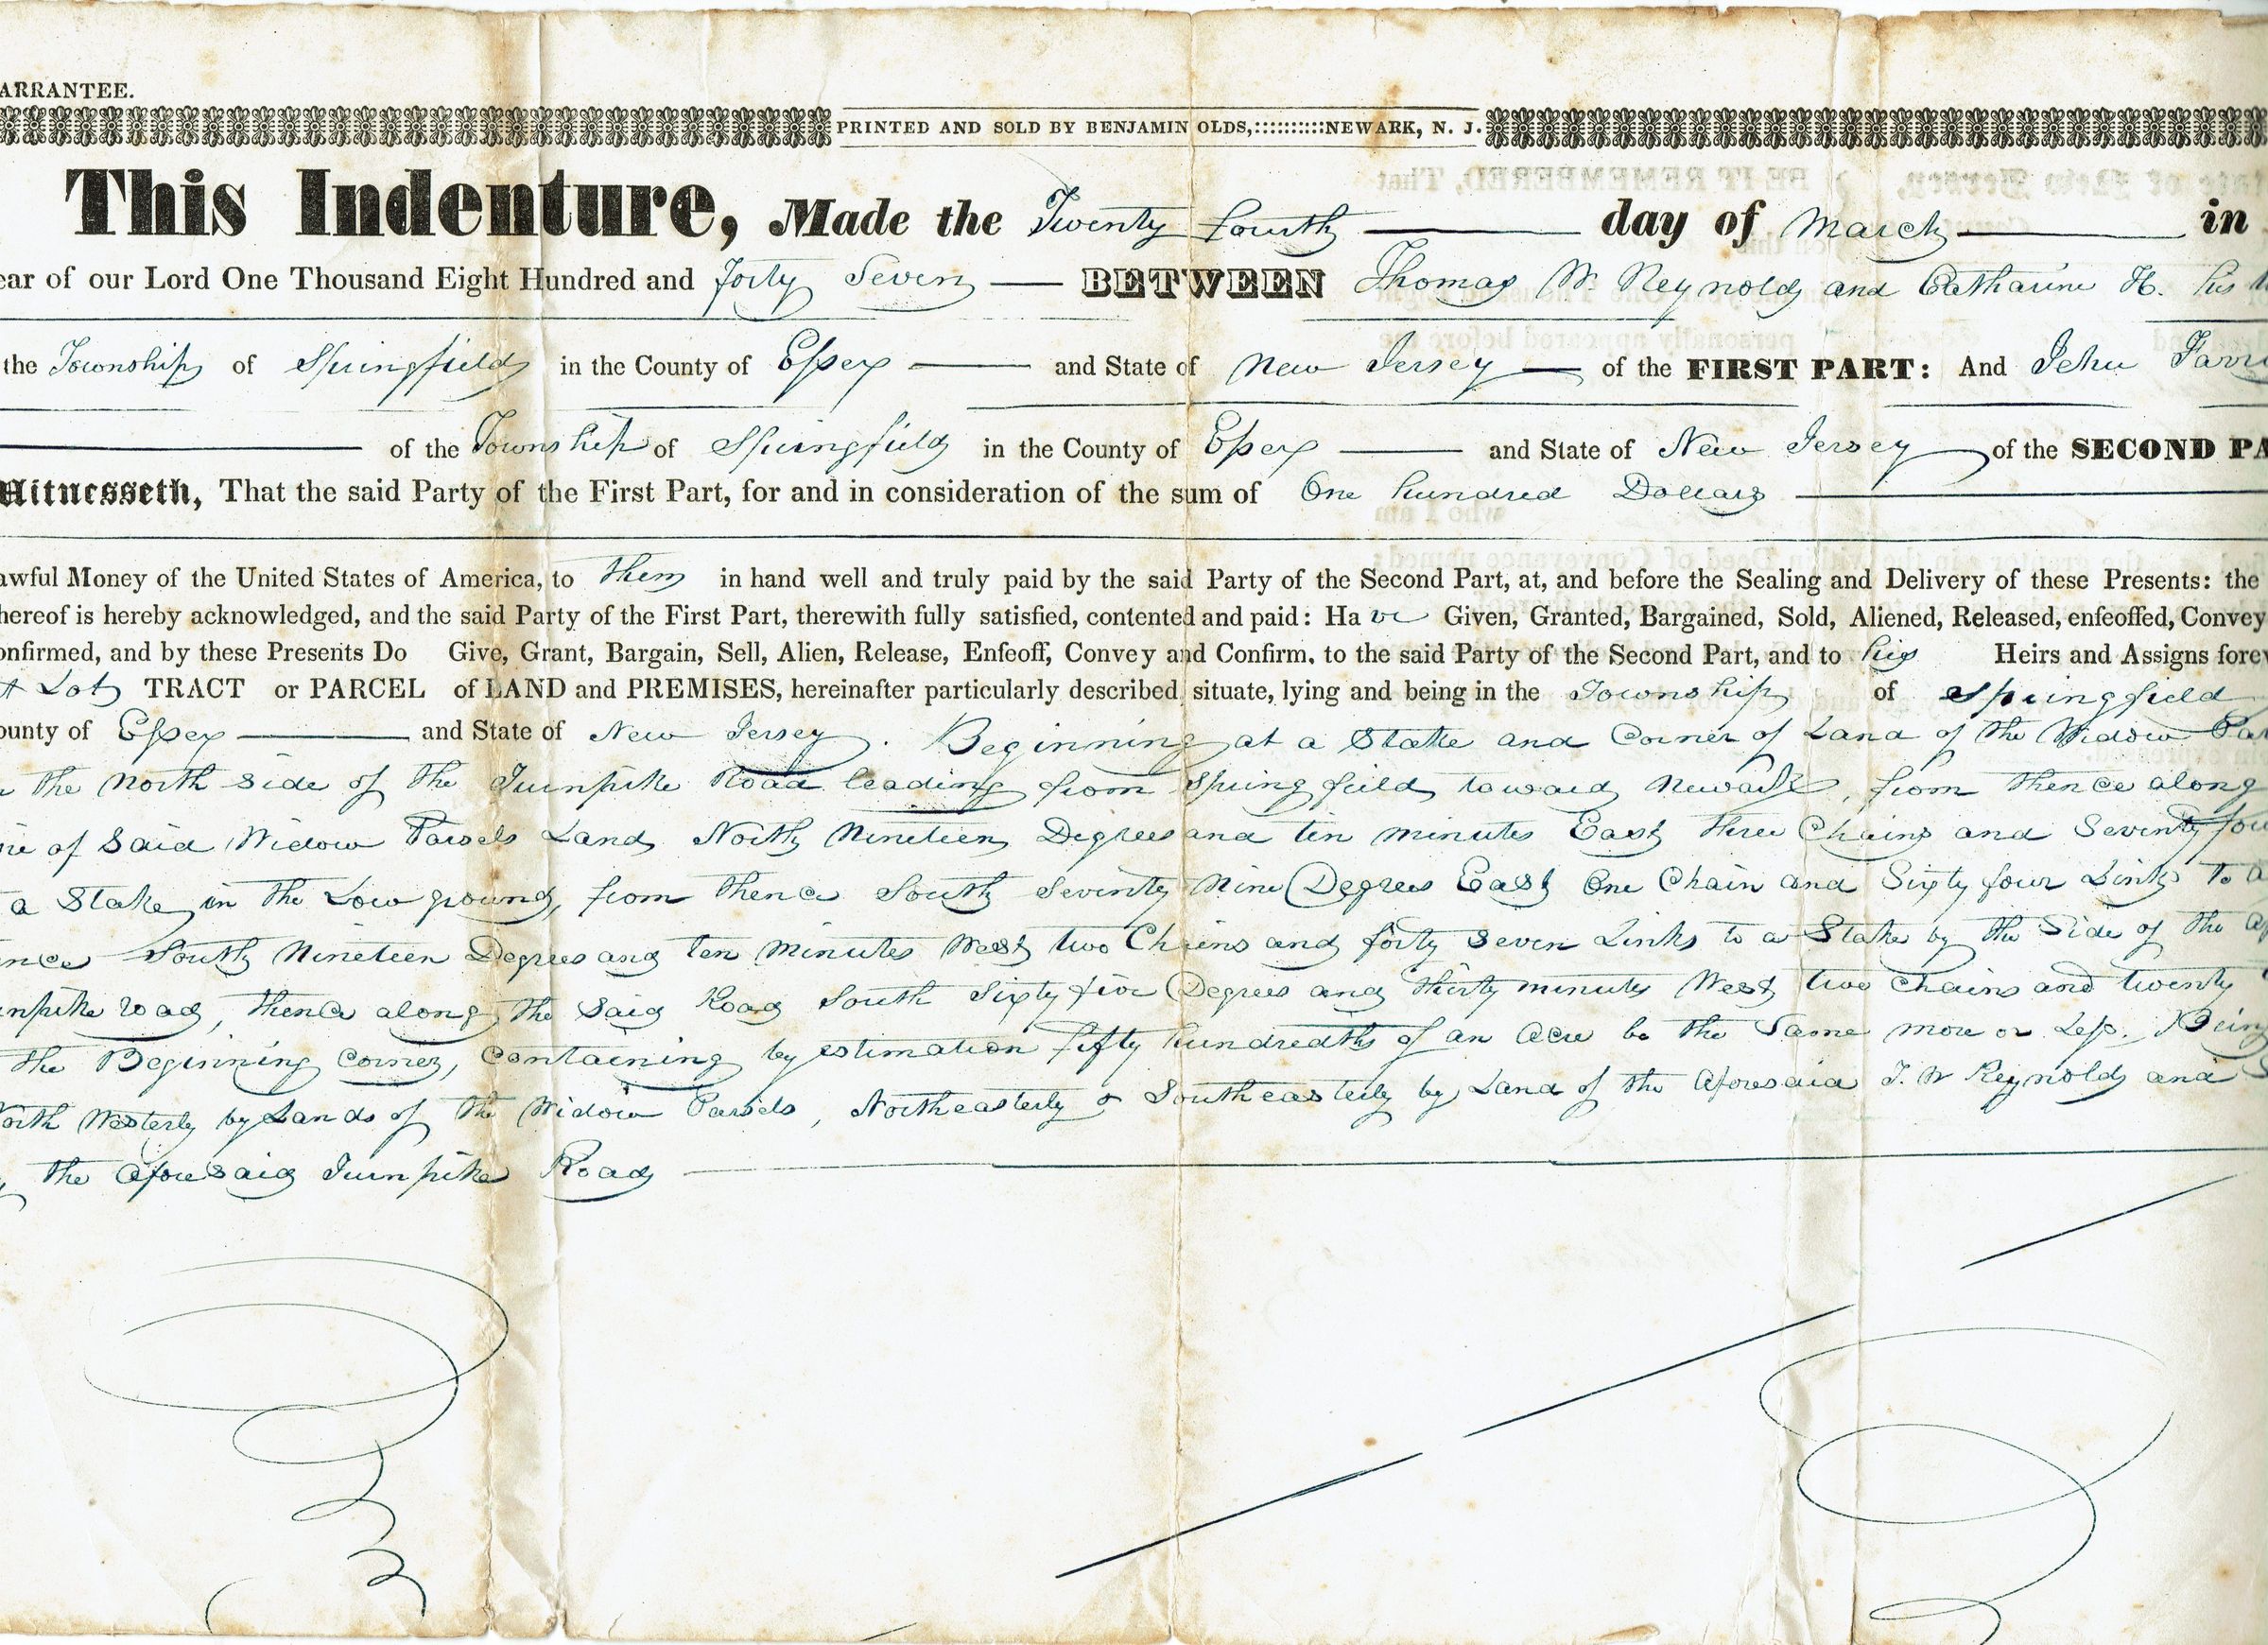 ARRANTEE.
PRINTED AND SOLD BY BENJAMIN OLDS,::::::::::NEWARK, N. J.
This Indenture, Made the Twenty fourth day of March in
ear of our Lord One Thousand Eight Hundred and forty Seven BETWEEN Thomas W. Reynolds and Catharine H. his
the Township of Springfield in the County of Essex and State of New Jersey of the FIRST PART: And Jehu
of the Township of Springfield in the County of Essex and State of New Jersey of the SECOND PA
Witnesseth, That the said Party of the First Part, for and in consideration of the sum of One hundred Dollars
awful Money of the United States of America, to them in hand well and truly paid by the said Party of the Second Part, at, and before the Sealing and Delivery of these Presents: the
hereof is hereby acknowledged, and the said Party of the First Part, therewith fully satisfied, contented and paid: Have Given, Granted, Bargained, Sold, Aliened, Released, enfeoffed, Convey
onfirmed, and by these Presents Do Give, Grant, Bargain, Sell, Alien, Release, Enfeoff, Convey and Confirm, to the said Party of the Second Part, and to his Heirs and Assigns forev
t Lot TRACT or PARCEL of LAND and PREMISES, hereinafter particularly described, situate, lying and being in the Township of Springfield
ounty of Essex and State of New Jersey. Beginning at a Stake and Corner of Land of the Widow
the north side of the Turnpike Road leading from Springfield toward Newark, from thence along
ne of Said Widow Parsels Land North Nineteen Degrees and ten minutes East three Chains and Seventy fou
a Stake in the Low ground, from thence South Seventy Nine Degrees East One Chain and Sixty four Links To a
nce South Nineteen Degrees and ten minutes West two Chains and forty Seven Links to a Stake by the Side of the
npike road, thence along the Said Road South Sixty five Degrees and thirty minutes West two Chains and twenty
the Beginning corner, Containing by estimation fifty hundredths of an acre be the Same more or Less. Being
orth Westerly by Lands of the Widow Parsels, Northeasterly & Southeasterly by Land of the Aforesaid T. W Reynolds and S
the Aforesaid Turnpike Road